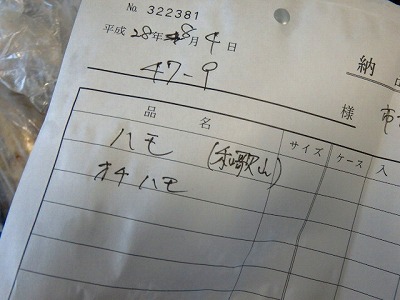 No. 322381
平成 28年 8月 4日
47-9
様
納
市
品名 サイズ ケース 入
ハモ (和歌山)
オチハモ